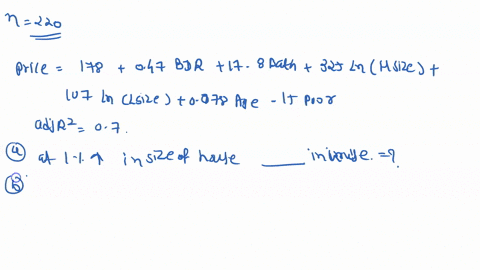 n = 220
Price = 178 + 0.47 BDR + 17.8 Bath + 325 ln (Hsize) +
107 ln (Lsize) + 0.078 Age - 15 poor
adj R² = 0.7.
(a) at 1% ↑ in size of house ____ =?
(B)